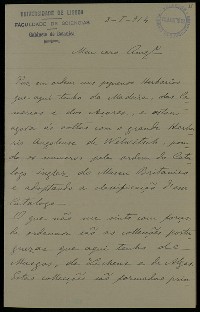 UNIVERSIDADE DE LISBOA
FACULDADE DE SCIENCIAS
Gabinete de Botanica
3-V-914
Meu caro Amigo
Puz em ordem uns pequenos herbarios
que aqui tenho da Madeira, das Ca-
narias e dos Açores, e estou
agora ás voltas com o grande Herba-
rio Angolense de Welwitsch, pon-
do os numeros pela ordem do Cata-
logo inglez, do Museu Britanico
e adoptando a classificação d'esse
Catalogo.
O que não me sinto com forças
de ordenar são as collecções portu-
guezas que aqui tenho de
Musgos, de Lichens e de Algas.
Estas collecções são formadas